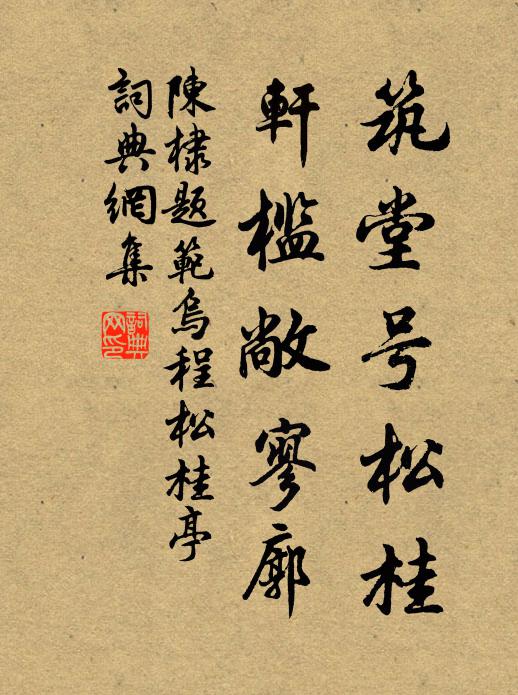 筑堂号松桂
軒檻敞寥廓
陳棣題範烏程松桂亭
詞典網集
詞典
网印